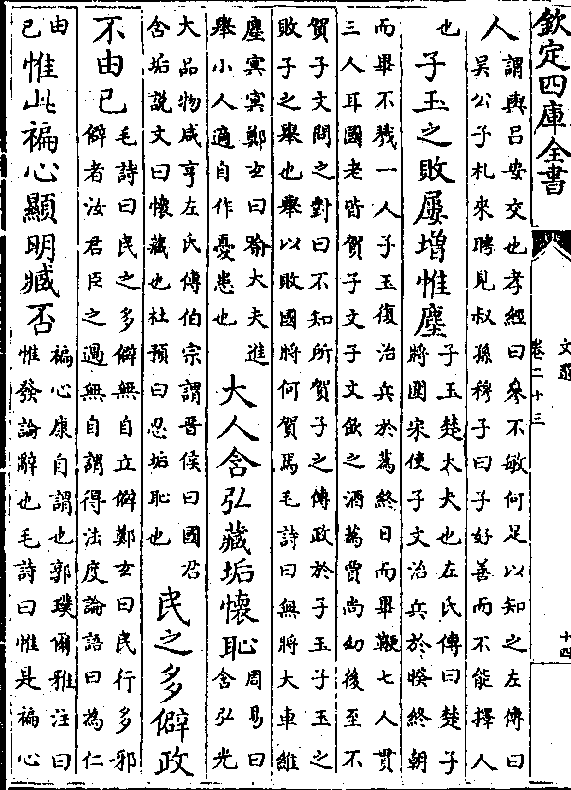 欽定四庫全書
文選
卷二十三
十四
人
謂與吕安交也孝經曰參不敏何足以知之左傳曰
吳公子札來聘見叔孫穆子曰子好善而不能擇人
也
子玉之敗屢增惟塵
子玉楚大夫也左氏傳曰楚子
將圍宋使子文治兵於暌終朝
而畢不戮一人子玉復治兵於蔿終日而畢鞭七人貫
三人耳國老皆賀子文子文飲之酒蔿賈尚幼後至不
賀子文問之對曰不知所賀子之傳政於子玉子玉之
敗子之舉也舉以敗國將何賀焉毛詩曰無將大車維
塵冥冥鄭玄曰喻大夫進
舉小人適自作憂患也
大人含弘藏垢懷恥
周易曰
含弘光
大品物咸亨左氏傳伯宗謂晉侯曰國君
含垢説文曰懷藏也杜預曰忍垢恥也
民之多僻政
不由已
毛詩曰民之多僻無自立僻鄭玄曰民行多邪
僻者汝君臣之過無自謂得法度論語曰為仁
由
已
惟此褊心顯明臧否
褊心康自謂也郭璞爾雅注曰
惟發論辭也毛詩曰惟是褊心